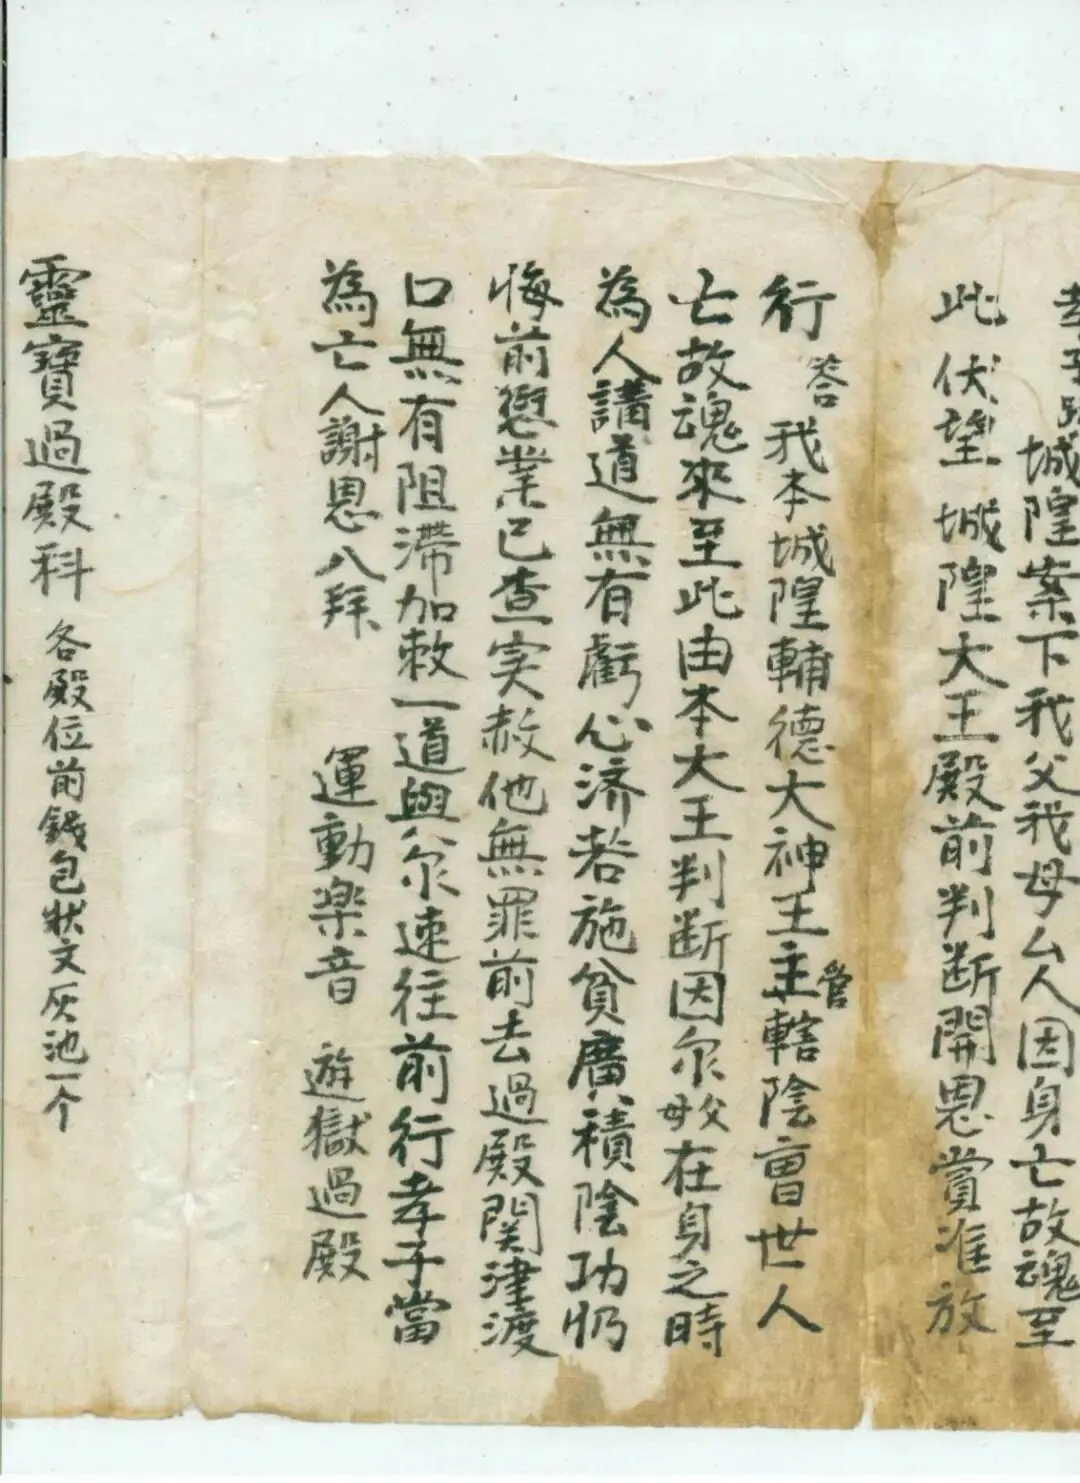 孝子跪
城隍案下我父我母亾人因身亡故魂至
此伏望城隍大王殿前判断開恩賞准放
行 答 我本城隍輔德大神王主管轄陰曹世人
亡故魂來至此由本大王判断因尔父母在身之時
為人講道無有虧心济若施貧廣積陰功仍
悔前愆業已查实赦他無罪前去過殿関津渡
口無有阻滯加敕一道與尔速往前行孝子當
為亡人謝恩八拜 運動樂音 遊獄過殿
靈寶過殿科 各殿位前錢包狀文灰池一个